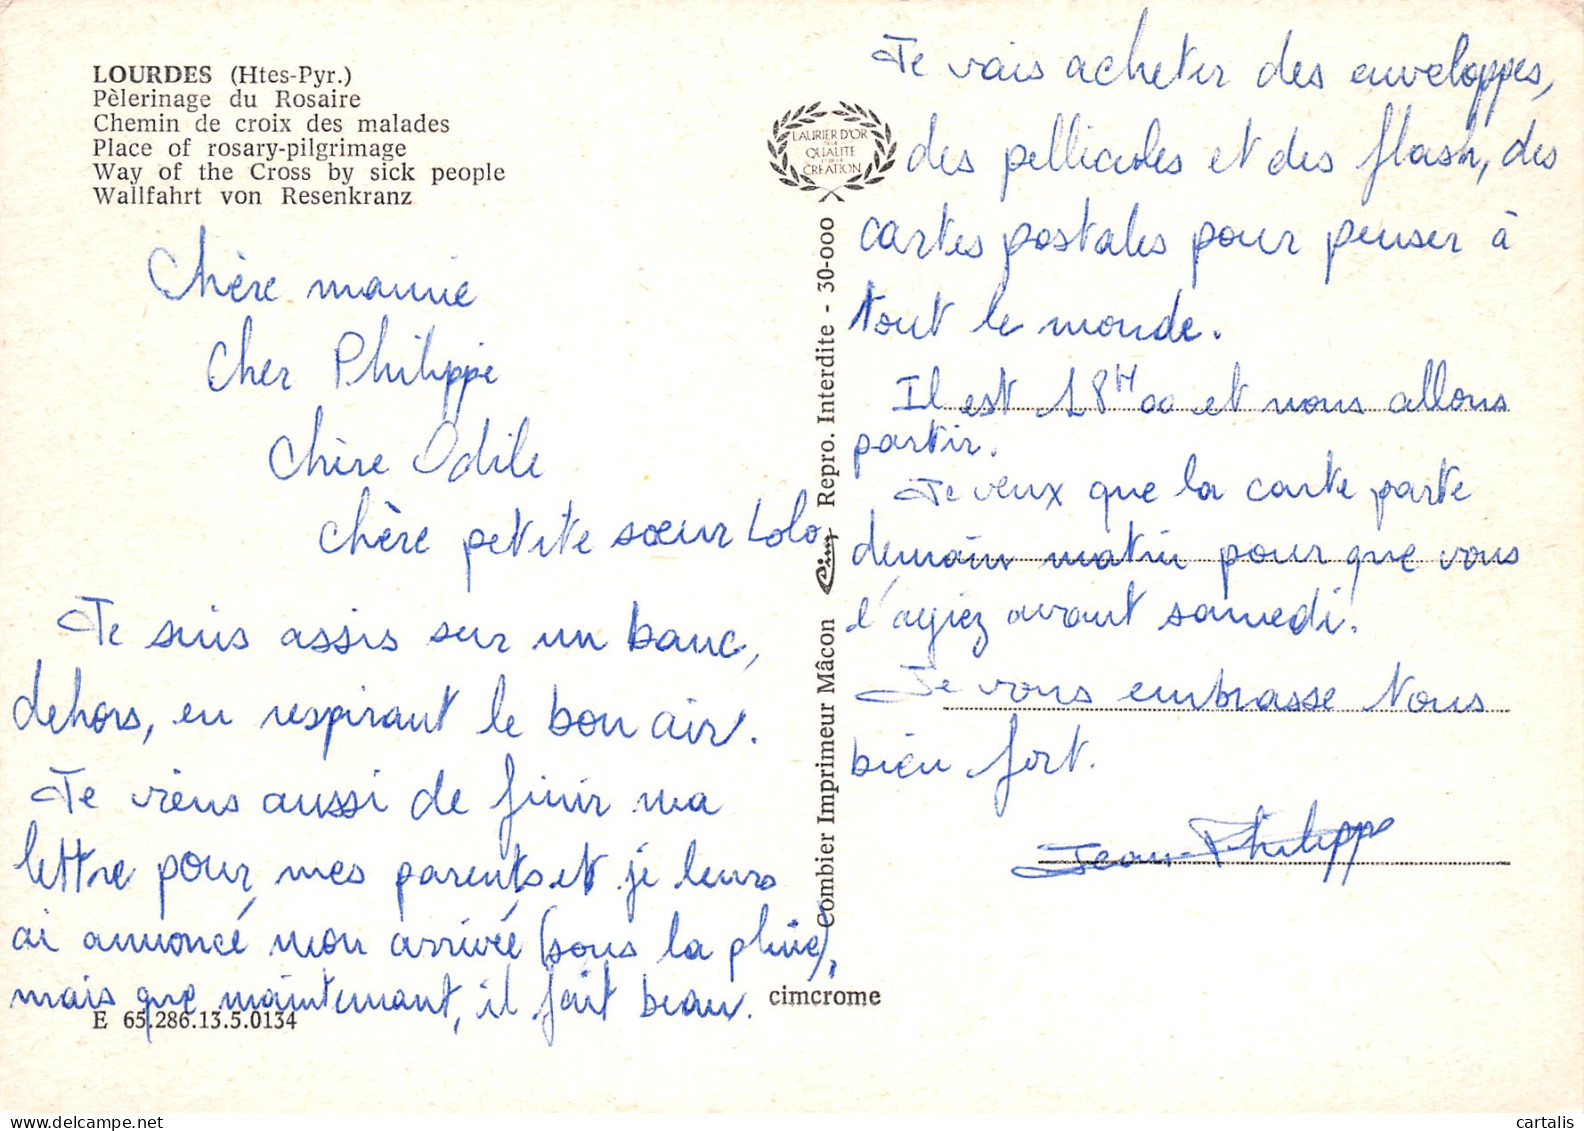 LOURDES (Htes-Pyr.)
Pèlerinage du Rosaire
Chemin de croix des malades
Place of rosary-pilgrimage
Way of the Cross by sick people
Wallfahrt von Resenkranz
Chère mamie
Cher Philippe
Chère Odile
chère petite sœur Lolo,
Je suis assis sur un banc,
dehors, en respirant le bon air.
Je viens aussi de finir ma
lettre pour mes parents et je leurs
ai annoncé mon arrivée (sous la pluie),
mais que maintenant, il fait beau.
E 65.286.13.5.0134
LAURIER D'OR
DE LA
QUALITE
ET DE LA
CREATION
Combier Imprimeur Mâcon Cim Repro. Interdite - 30-000
cimcrome
Je vais acheter des enveloppes,
des pellicules et des flash, des
cartes postales pour penser à
tout le monde.
Il est 18H00 et nous allons
partir.
Je veux que la carte parte
demain matin pour que vous
l'ayiez avant samedi.
Je vous embrasse tous
bien fort.
Jean-Philippe
cartalis